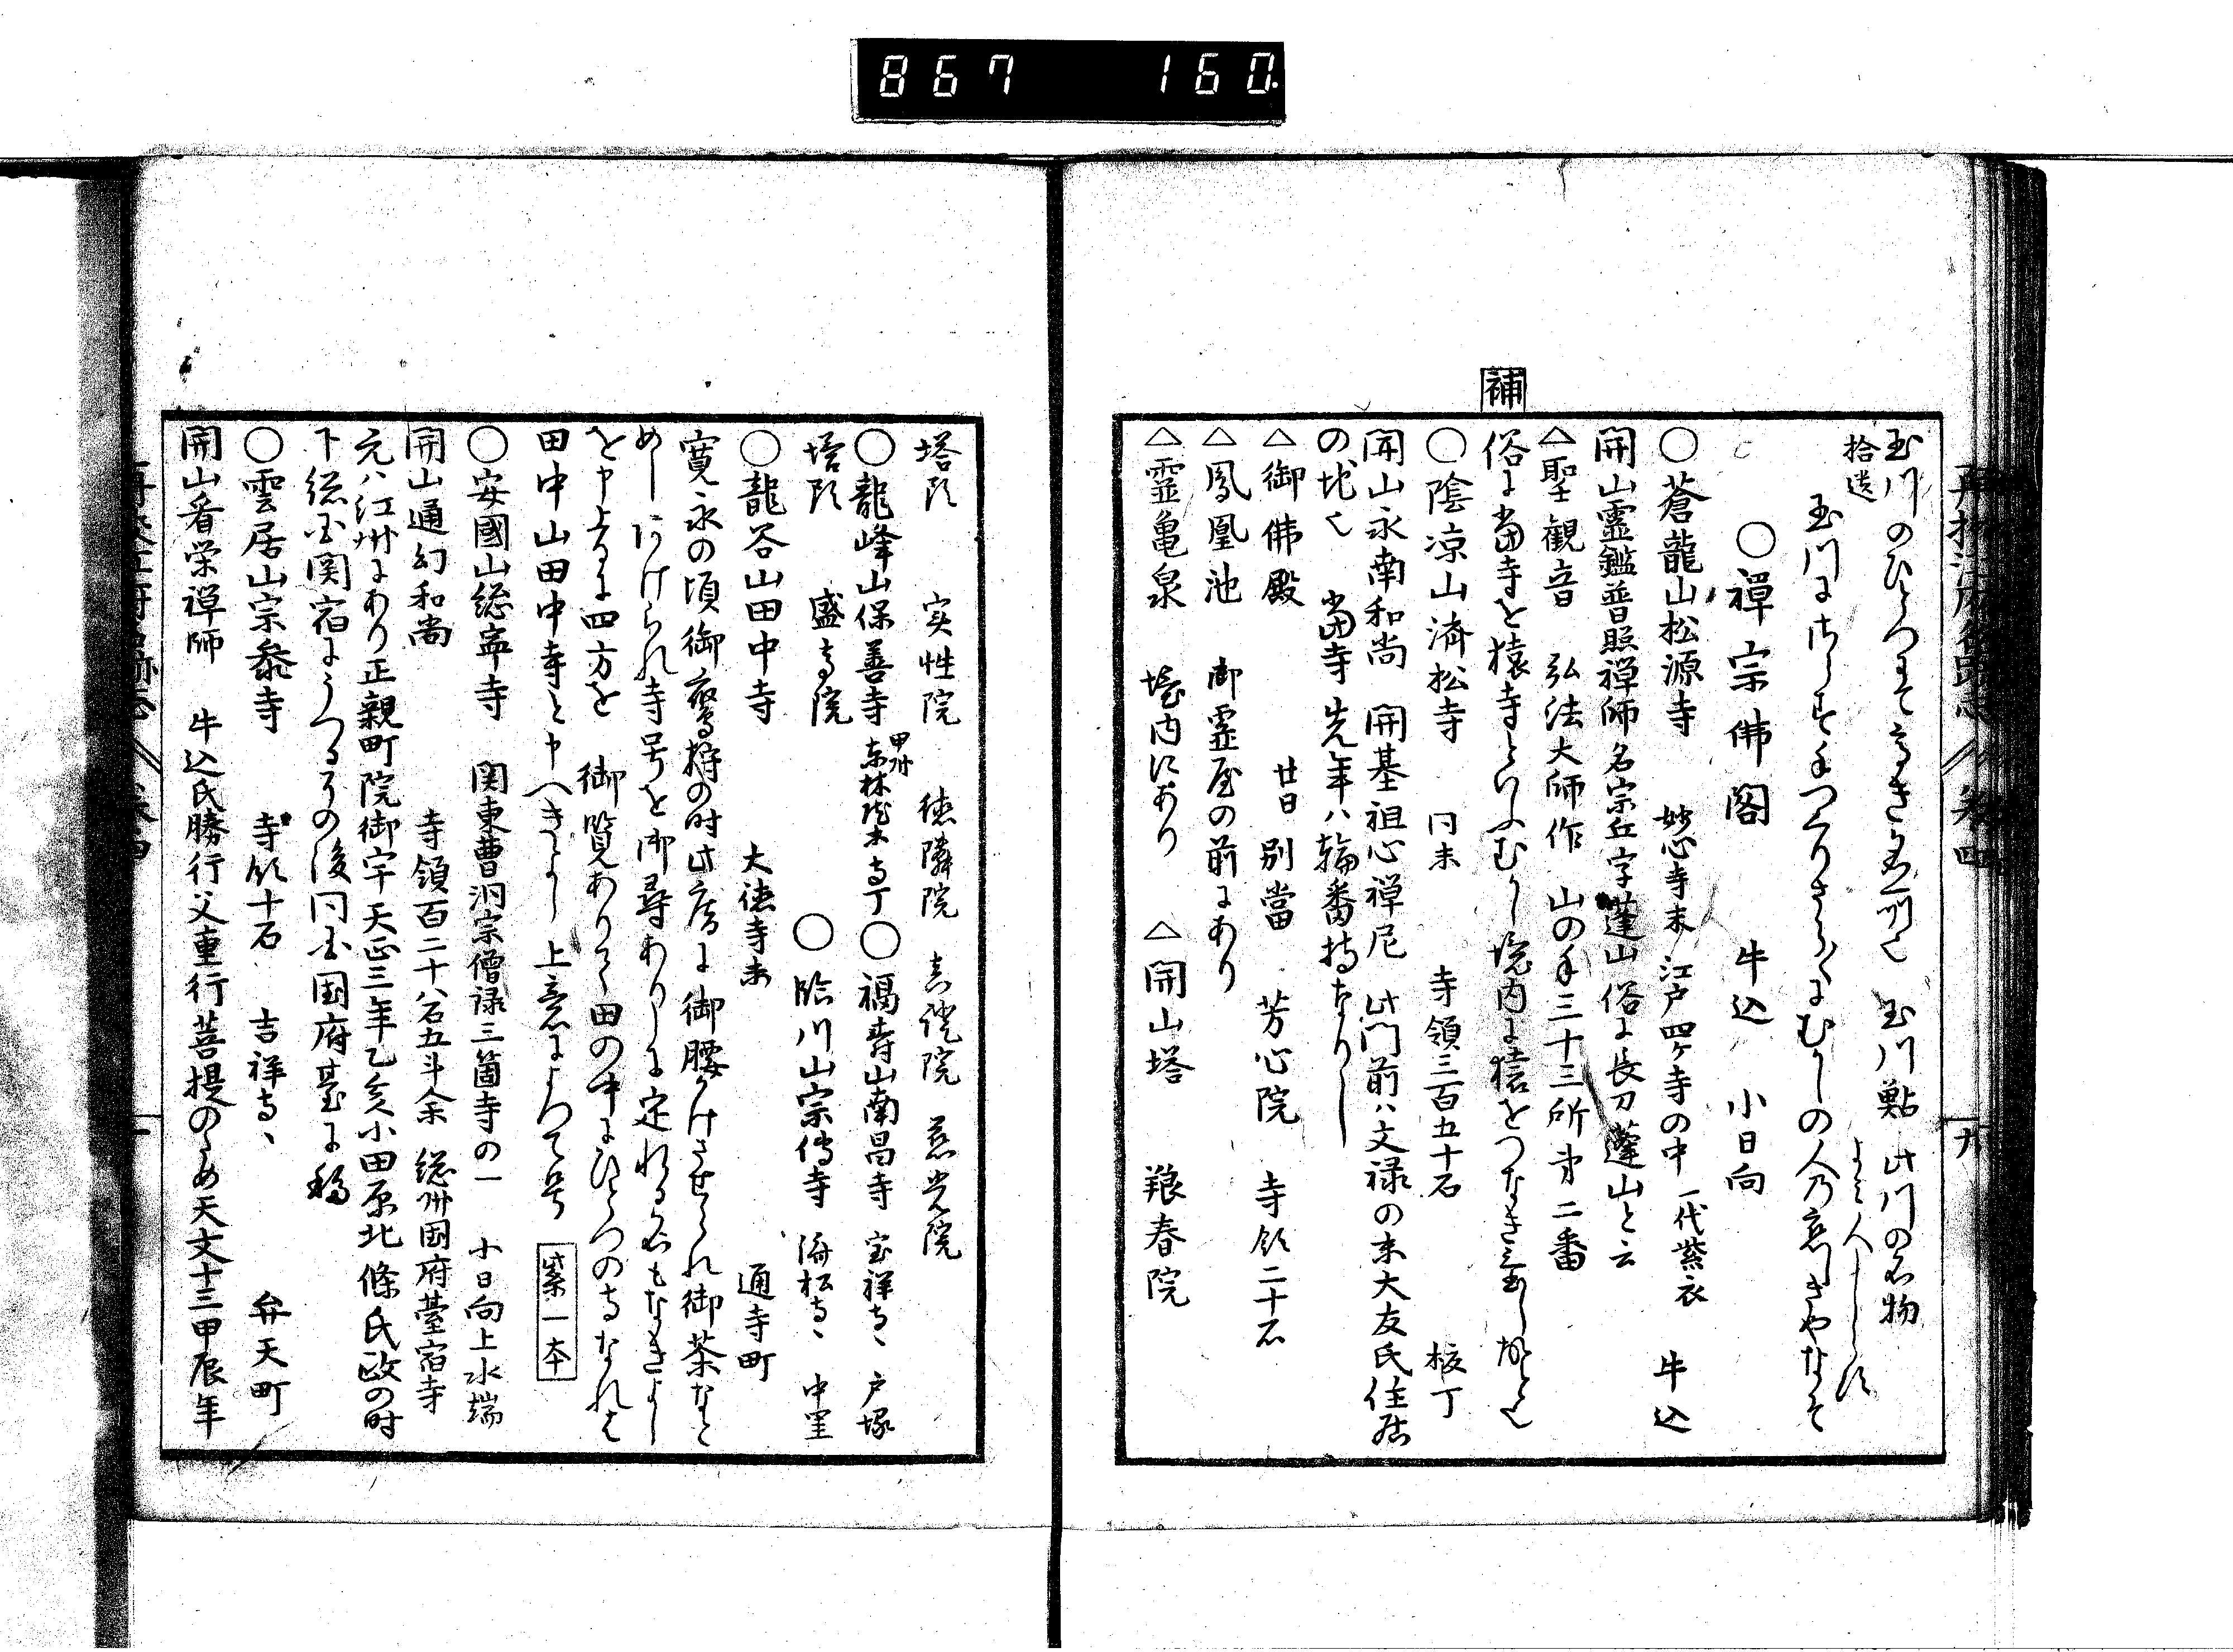 867 160.
玉川のひとつにて名所也 玉川鮎 此川の名物
拾遺 よみ人しらす
玉川にさらす手つくりさらさらにむかしの人の恋しきやなそ
○禅宗佛閣 牛込 小日向
○蒼龍山松源寺 妙心寺末 江戸四ケ寺の中 一代紫衣 牛込
開山霊鑑普照禅師 名宗丘字蓬山俗に長刀蓬山と云
△聖観音 弘法大師作 山の手三十三所第二番
補
俗に当寺を猿寺といふむかし境内に猿をつなき置し故と也
○陰凉山済松寺 同末 寺領三百五十石 榎丁
開山永南和尚 開基祖心禅尼 此門前ハ文禄の末大友氏住居
の地也 当寺先年ハ輪番持なりし
△御佛殿 廿日 別當 芳心院 寺領二十石
△鳳凰池 御霊屋の前にあり
△霊亀泉 境内にあり △開山塔 春院
再校江府名跡志 巻四 九
塔頭 実性院 徳隣院 慈光院
○龍峰山保善寺 甲州 ○福寿山南昌寺 宝祥寺、 戸塚
塔頭 盛高院 ○臨川山宗傳寺 済松寺、 中里
○龍谷山田中寺 大徳寺末 通寺町
寛永の頃御鷹狩の時此寺に御腰かけさせられ御茶なと
めし上けられ寺号を御尋ありしに定れる名もなきよし
を申上るに四方を 御覧ありて田の中にひとつの寺なれは
田中山田中寺と申へきよし 上意によつて号 紫一本
○安國山総寧寺 関東曹洞宗僧禄三箇寺の一 小日向上水端
開山通幻和尚 寺領百二十八石五斗余 総州国府臺宿寺
元ハ江州にあり正親町院御宇天正三年乙亥小田原北條氏政の時
下総国関宿にうつる其の後同国国府臺に移
○雲居山宗参寺 寺領十石 吉祥寺、 弁天町
開山看栄禅師 牛込氏勝行父重行菩提のため天文十三甲辰年